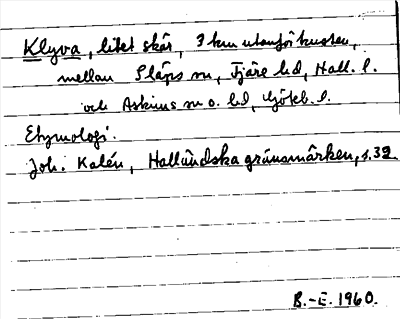 Klyva, litet skär, 3 km utanför kusten,
mellan Släps sn, Fjäre hd, Hall. l.
och Askims sn o. hd, Göteb. l.
Etymologi.
Joh. Kalén, Halländska gränsmärken, s. 32.
B.-E. 1960.